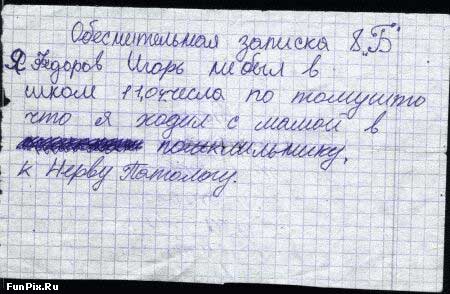 Обеснительная записка 8 „Б"
Я Федоров Игорь небыл в
школ 11,04числа по томушто
что я ходил с мамой в
к Нерву Патологу.
FunPix.Ru